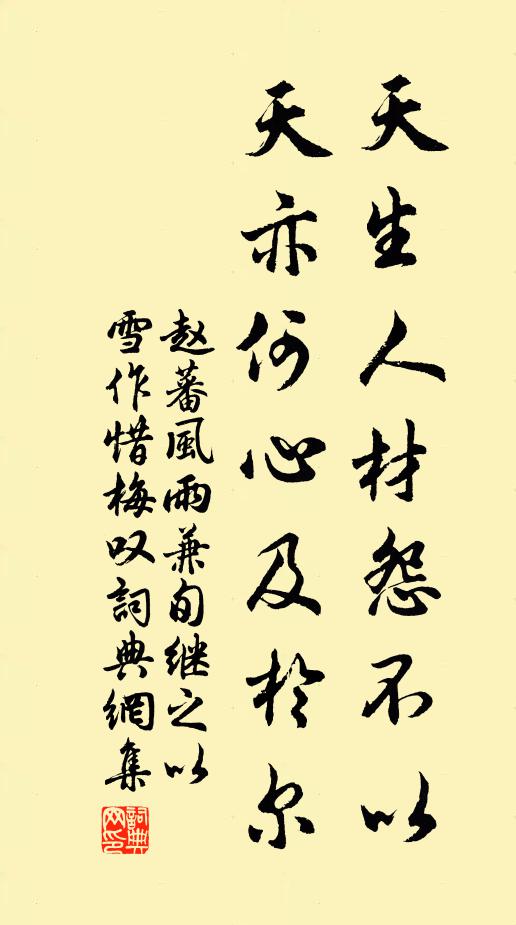 天生人材怨不以
天亦何心及於尔
赵蕃風雨兼旬继之以
雪作惜梅叹詞典網集
詞典
网印